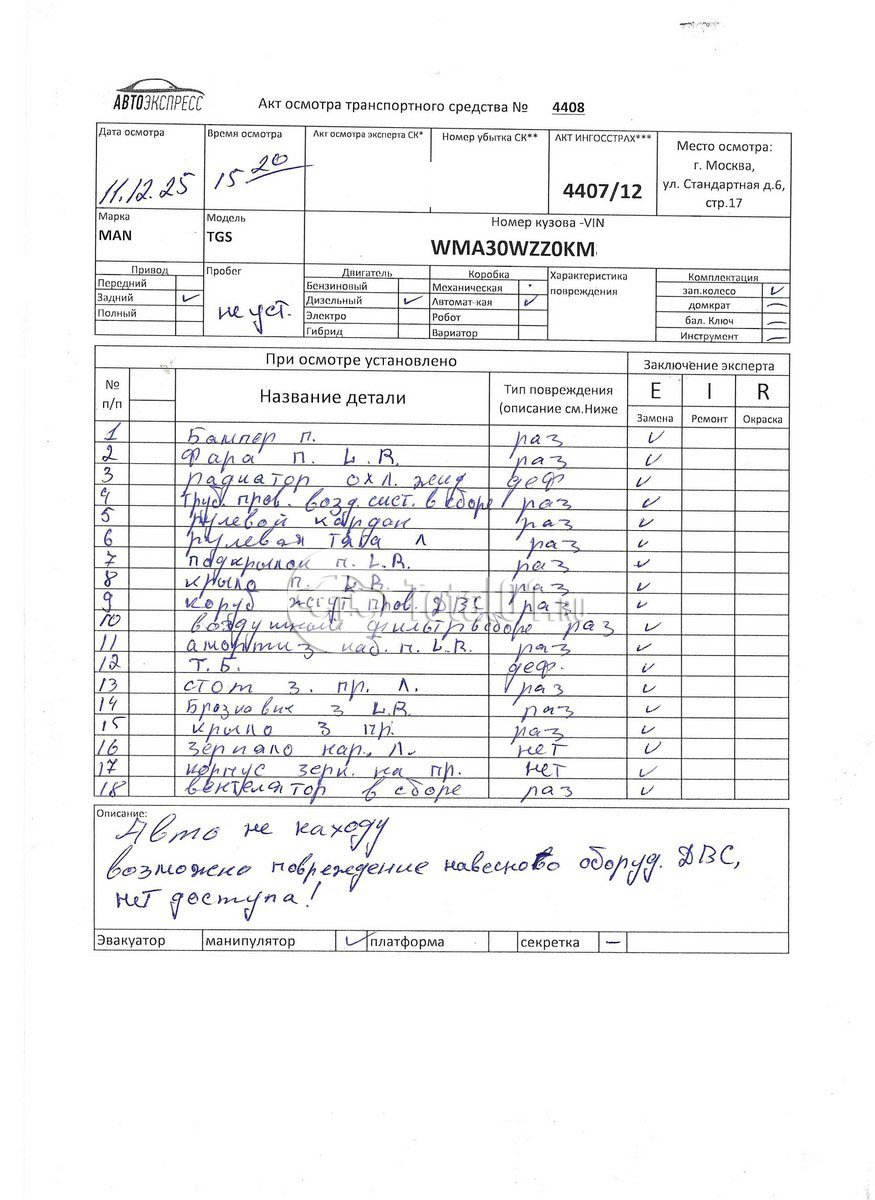 АВТОЭКСПРЕСС
Акт осмотра транспортного средства № 4408
Дата осмотра Время осмотра Акт осмотра эксперта СК* Номер убытка СК** АКТ ИНГОССТРАХ*** Место осмотра:
г. Москва,
ул. Стандартная д.6,
стр.17
11.12.25 15 20 4407/12
Марка Модель Номер кузова -VIN
MAN TGS WMA30WZZ0KM
Привод Пробег Двигатель Коробка Характеристика повреждения Комплектация
Передний Бензиновый Механическая зап.колесо ✓
Задний ✓ не уст. Дизельный ✓ Автомат-кая ✓ домкрат —
Полный Электро Робот бал. Ключ —
Гибрид Вариатор Инструмент —
При осмотре установлено Заключение эксперта
№ п/п Название детали Тип повреждения (описание см.Ниже E I R
Замена Ремонт Окраска
1 Бампер п. раз ✓
2 Фара п. L.R. раз ✓
3 радиатор охл. жид деф ✓
4 труб. пров. возд. сист. в сборе раз ✓
5 рулевой кардан раз ✓
6 рулевая тяга л раз ✓
7 подкрылок п. L.R. раз ✓
8 крыло п. L.R. раз ✓
9 коруб жгут пров. ДВС раз ✓
10 воздушной фильтр в сборе раз ✓
11 амортиз каб. п. L.R. раз ✓
12 Т.Б. деф. ✓
13 стоп з. пр. Л. раз ✓
14 Брозкавик з L.R. раз ✓
15 крыло з пр. раз ✓
16 зеркало нар. Л. нет ✓
17 корпус зерк. на пр. нет ✓
18 вентелятор в сборе раз ✓
Описание:
Авто не каходу
возможено повреждение навесного оборуд. ДВС,
нет доступа!
Эвакуатор манипулятор ✓ платформа секретка —